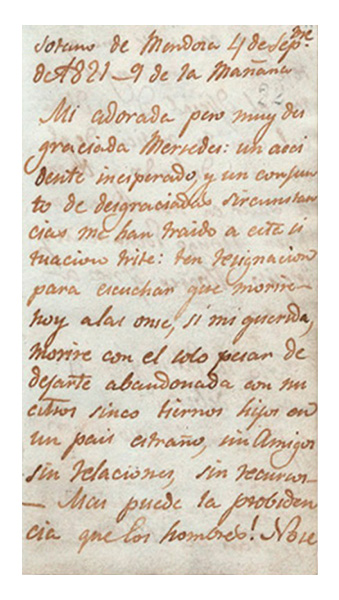 Sotano de Mendoza 4 de Sep.me
de 1821 - 9 de la Mañana
22
Mi adorada pero muy des
graciada Mersedes: un acci
dente inesperado, y un conjun
to de desgraciadas sircunstan
cias me han traido a este si
tuacion triste: ten resignacion
para escuchar que morire
hoy alas onse, si mi querida,
morire con el solo pesar de
dejarte abandonada con nu
estros sinco tiernos hijos en
un pais estraño, sin Amigos
sin relaciones, sin recursos-
- Mas puede la probiden
cia que los hombres! Nose